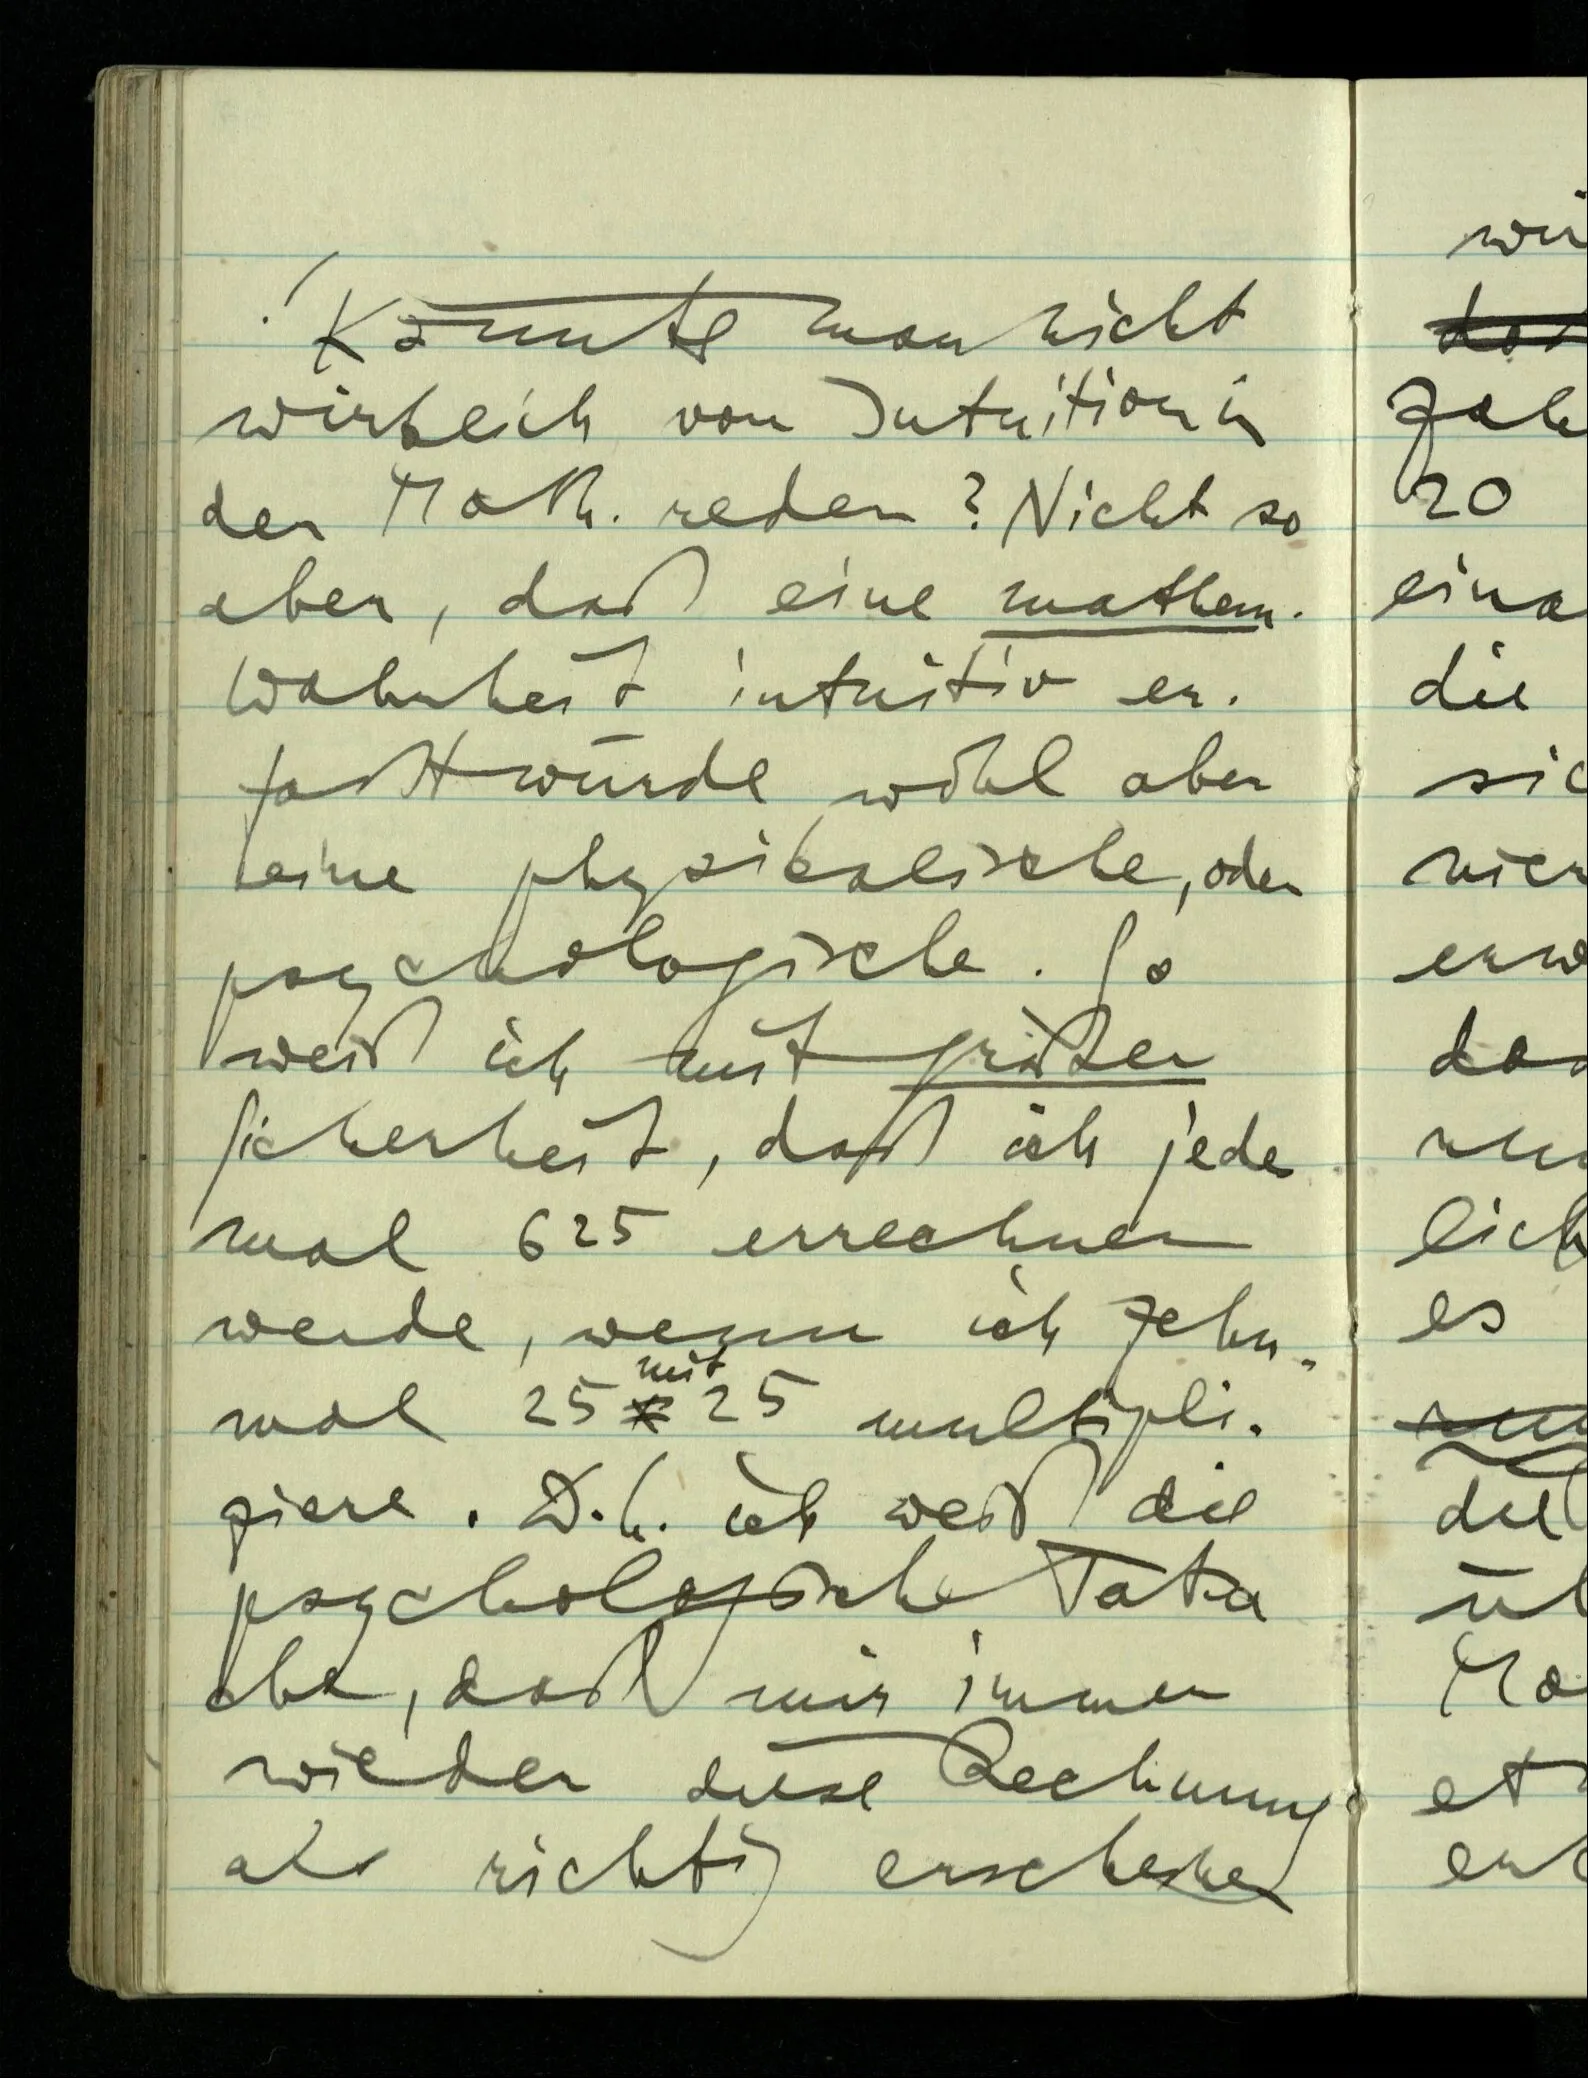 Könnte man nicht
wirklich von Intuition in
der Math. reden? Nicht so
aber, daß eine mathem.
Wahrheit intuitiv er-
faßt würde wohl aber
eine physikalische, oder
psychologische. So
weiß ich mit großer
Sicherheit, daß ich jedes
mal 625 errechnen
werde, wenn ich zehn-
mal 25 mit 25 multipli-
ziere. D.h. ich weiß die
psychologische Tatsa
che, daß mir immer
wieder diese Rechnung
als richtig erscheinen
wir
Zah
20
eina
die
sic
nich
erw
das
lich
es
die
üb
Ma
et